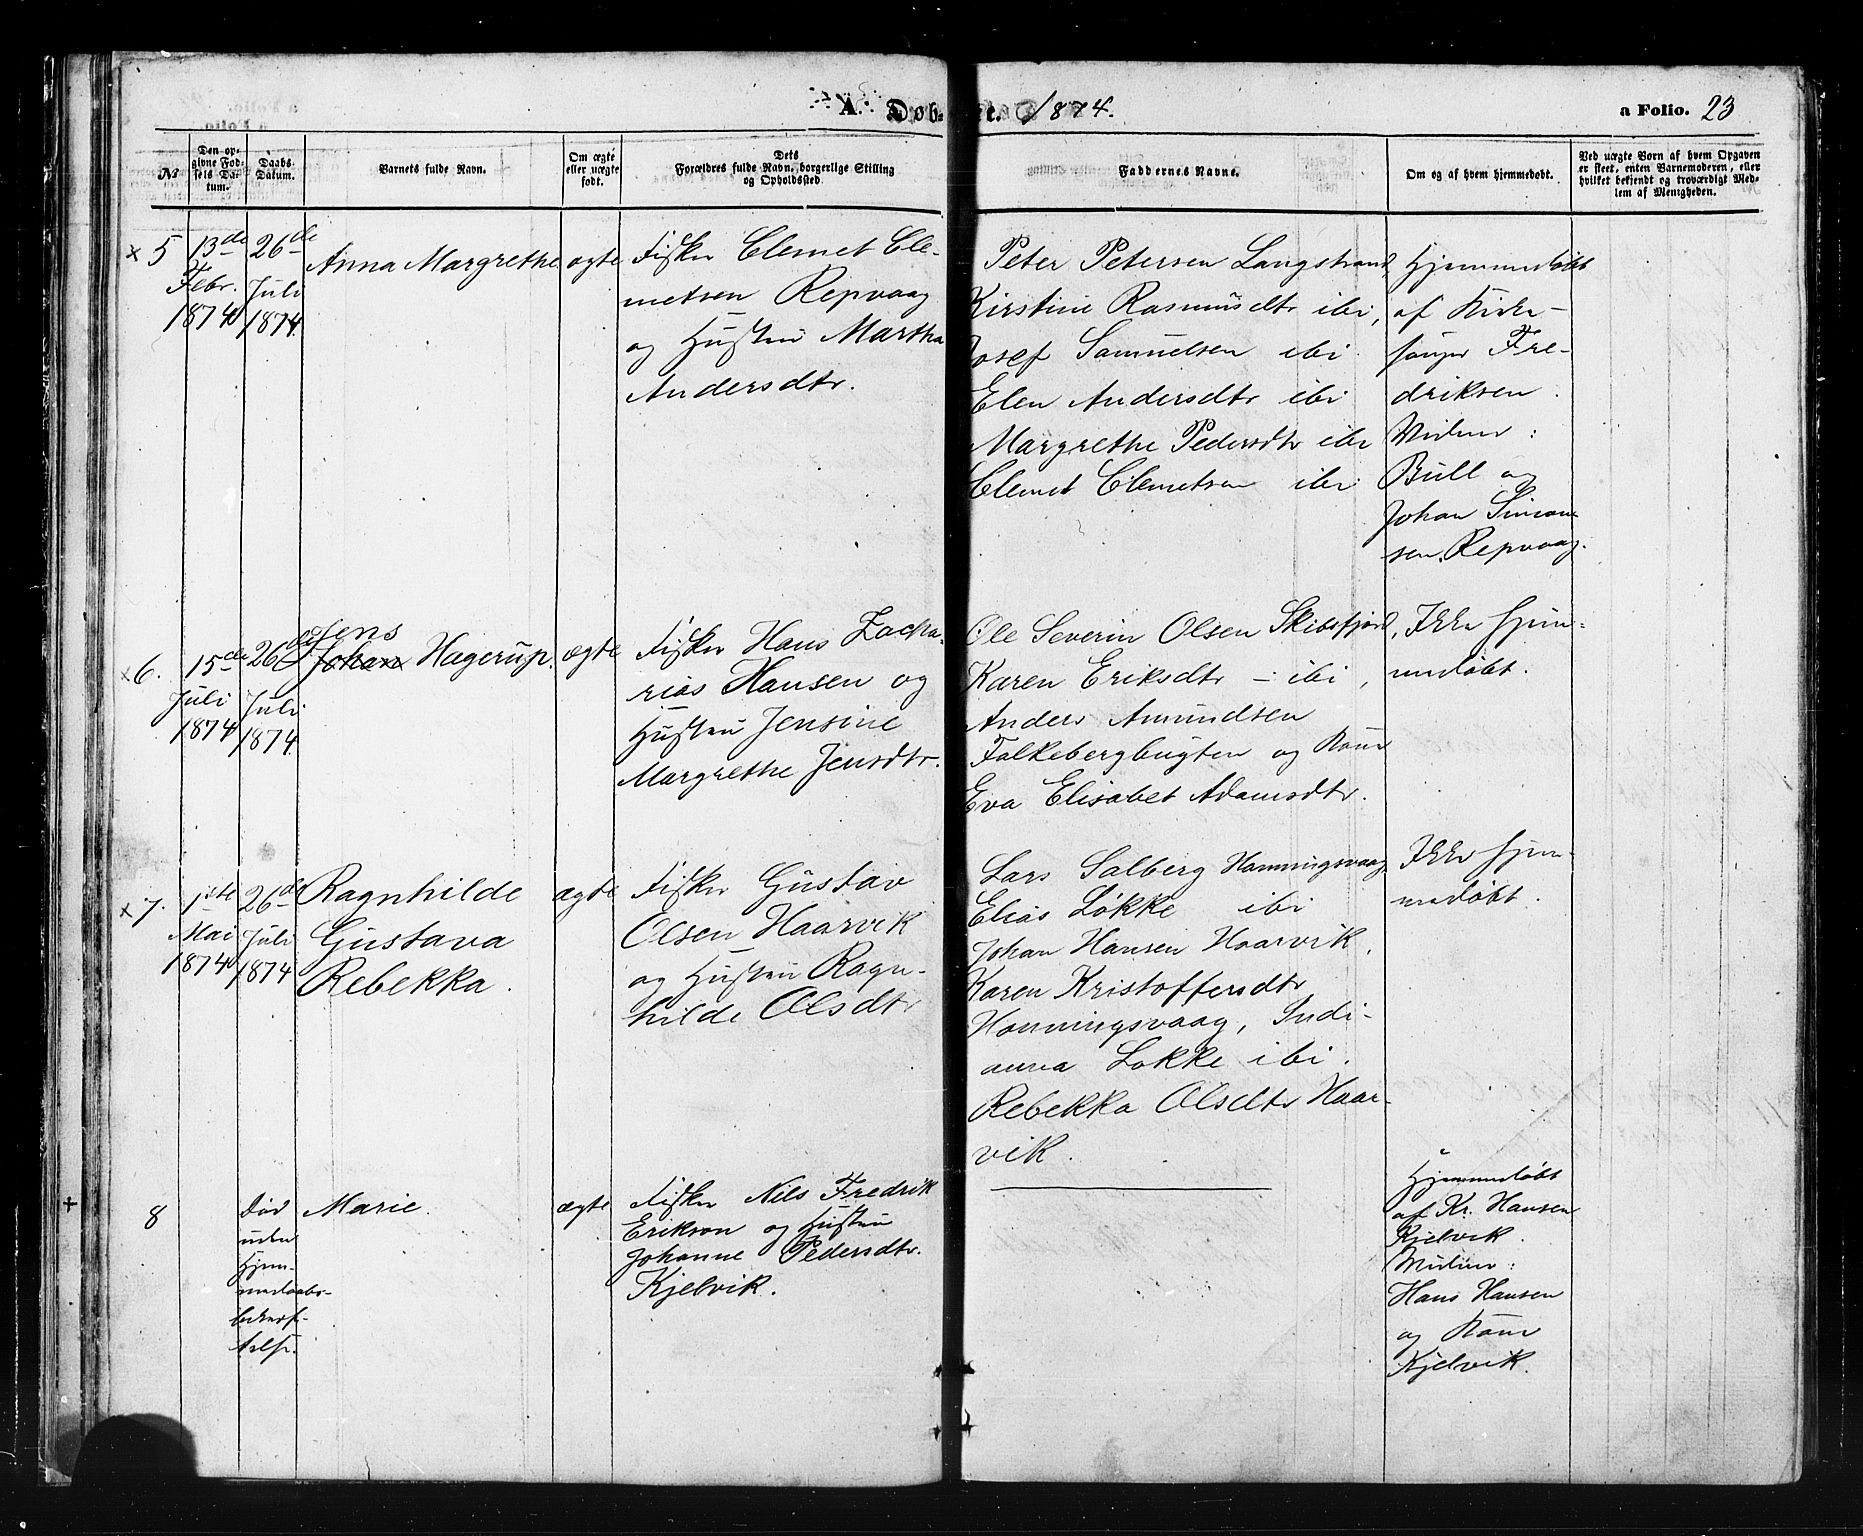 A. Døb- te. 1874.
a Folio. 23
№
Den op-
givne Fød-
sels Da-
tum.
Daabs-
Datum.
Barnets fulde Navn.
Om ægte
eller uægte
født.
Dets
Forældres fulde Navn, borgerlige Stilling
og Opholdssted.
Faddernes Navne.
Om og af hvem hjemmedøbt.
Ved uægte Børn af hvem Opgaven
er skeet, enten Barnemoderen, eller
hvilket bekjendt og troværdigt Med-
lem af Menigheden.
× 5
13de
Febr.
1874
26de
Juli
1874
Anna Margrethe
ægte
Fisker Clemet Cle-
metsen Repvaag
og Hustru Martha
Andersdtr.
Peter Petersen Langstrand,
Kirstine Rasmusdtr ibi,
Josef Samuelsen ibi
Elen Andersdtr ibi
Margrethe Pedersdtr ibi
Clemet Clemetsen ibi
Hjemmedøbt
af Kirke-
sanger Fre-
driksen.
Vidner:
Bull og
Johan Simon-
sen, Repvaag.
× 6.
15de
Juli
1874
26de
Juli
1874
Jens
Johan Hagerup.
ægte
Fisker Hans Zacha-
rias Hansen og
Hustru Jensine
Margrethe Jensdtr.
Ole Severin Olsen Skibsfjord,
Karen Eriksdtr - ibi,
Anders Amundsen
Falkebergbugten og Kone
Eva Elisabet Adamsdtr.
Ikke hjem-
medøbt.
× 7.
1ste
Mai
1874
26de
Juli
1874
Ragnhilde
Gustava
Rebekka.
ægte
Fisker Gustav
Olsen Haarvik
og Hustru Ragn-
hilde Olsdtr
Lars Salberg Honningsvaag
Elias Løkke ibi
Johan Hansen Haarvik,
Karen Kristoffersdtr
Honningsvaag, Indi-
anna Løkke ibi.
Rebekka Olsdtr Haar-
vik.
Ikke hjem-
medøbt.
8
død
uden
Hjem-
medaabs-
bekræf-
telse.
Marie.
ægte
Fisker Nils Fredrik
Erikson og Hustru
Johanne Pedersdtr.
Kjelvik.
Hjemmedøbt
af Kr. Hansen
Kjelvik.
Vidner:
Hans Hansen
og Kone
Kjelvik.